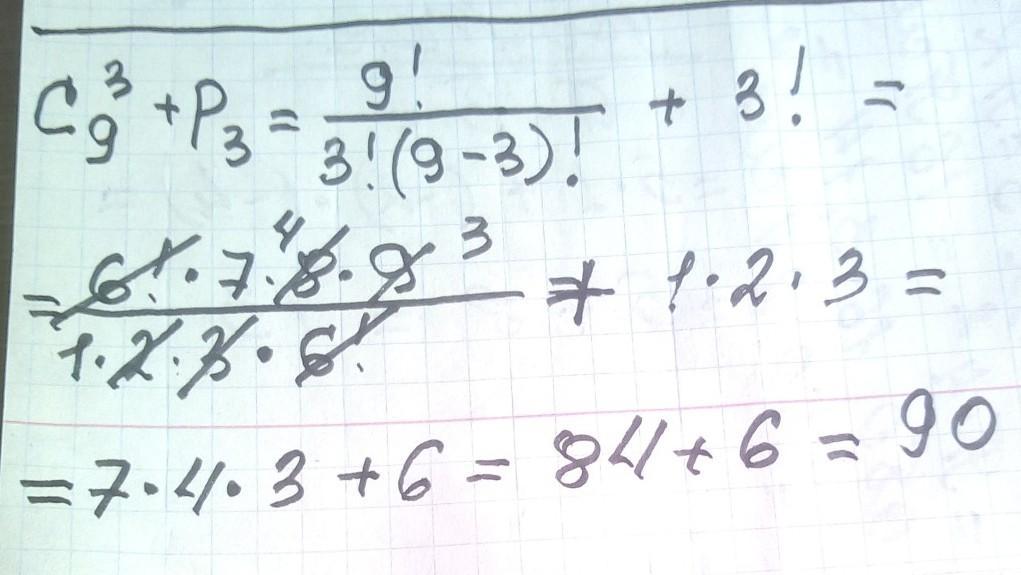 C₉³ + P₃ = 9! / 3!(9-3)! + 3! =
= 6!·7·8·9 / 1·2·3·6! (4, 3) + 1·2·3 =
= 7·4·3 + 6 = 84 + 6 = 90